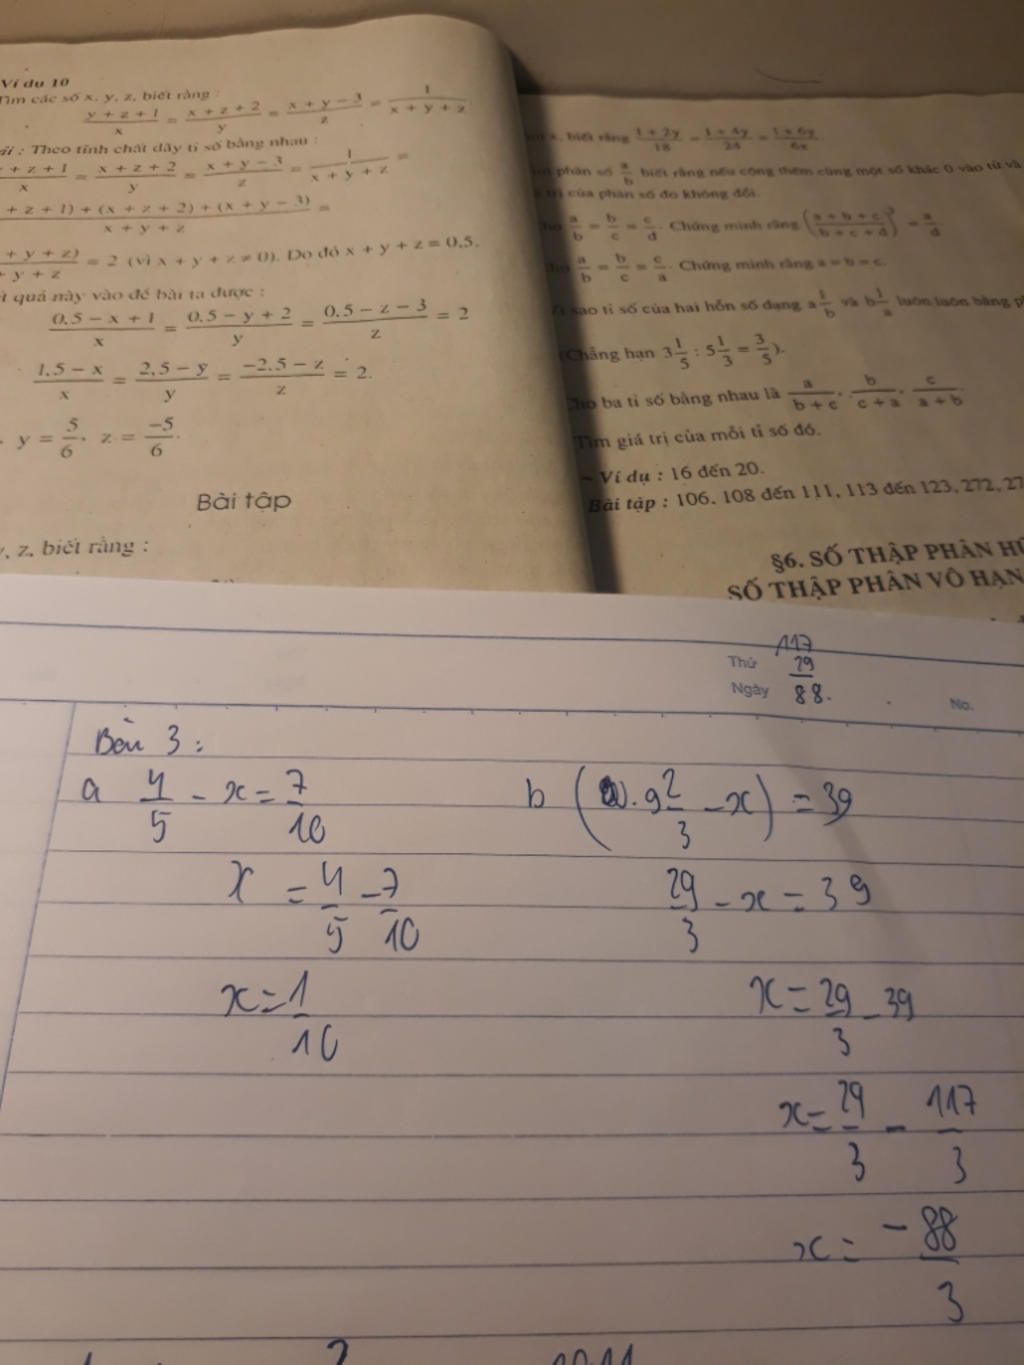 Ví dụ 10
Tìm các số x, y, z, biết rằng :
(y + z + 1)/x = (x + z + 2)/y = (x + y − 3)/z = 1/(x + y + z)
: Theo tính chất dãy tỉ số bằng nhau :
+ z + 1/x = (x + z + 2)/y = (x + y − 3)/z = 1/(x + y + z) =
+ z + 1) + (x + z + 2) + (x + y − 3)/(x + y + z) =
+ y + z)/+ y + z = 2 (vì x + y + z ≠ 0). Do đó x + y + z = 0,5.
quả này vào đề bài ta được :
(0,5 − x + 1)/x = (0,5 − y + 2)/y = (0,5 − z − 3)/z = 2
(1,5 − x)/x = (2,5 − y)/y = (−2,5 − z)/z = 2.
y = 5/6, z = −5/6.
Bài tập
, z, biết rằng :
x, biết rằng (1 + 2y)/18 = (1 + 4y)/24 = (1 + 6y)/6x
phân số a/b biết rằng nếu cộng thêm cùng một số khác 0 vào tử và
trị của phân số đó không đổi.
a/b = b/c = c/d. Chứng minh rằng ((a + b + c)/(b + c + d))³ = a/d
a/b = b/c = c/a. Chứng minh rằng a = b = c.
sao tỉ số của hai hỗn số dạng a 1/b và b 1/a luôn luôn bằng
(Chẳng hạn 3 1/5 : 5 1/3 = 3/5).
Cho ba tỉ số bằng nhau là a/(b + c), b/(c + a), c/(a + b).
Tìm giá trị của mỗi tỉ số đó.
– Ví dụ : 16 đến 20.
Bài tập : 106, 108 đến 111, 113 đến 123, 272, 27
§6. SỐ THẬP PHÂN HỮ
SỐ THẬP PHÂN VÔ HẠN
117
Thứ 29
Ngày 88.
No.
Bài 3 :
a 4/5 - x = 7/10
x = 4/5 - 7/10
x = 1/10
b ( . 9 2/3 - x ) = 39
29/3 - x = 39
x = 29/3 - 39
x = 29/3 - 117/3
x = -88/3